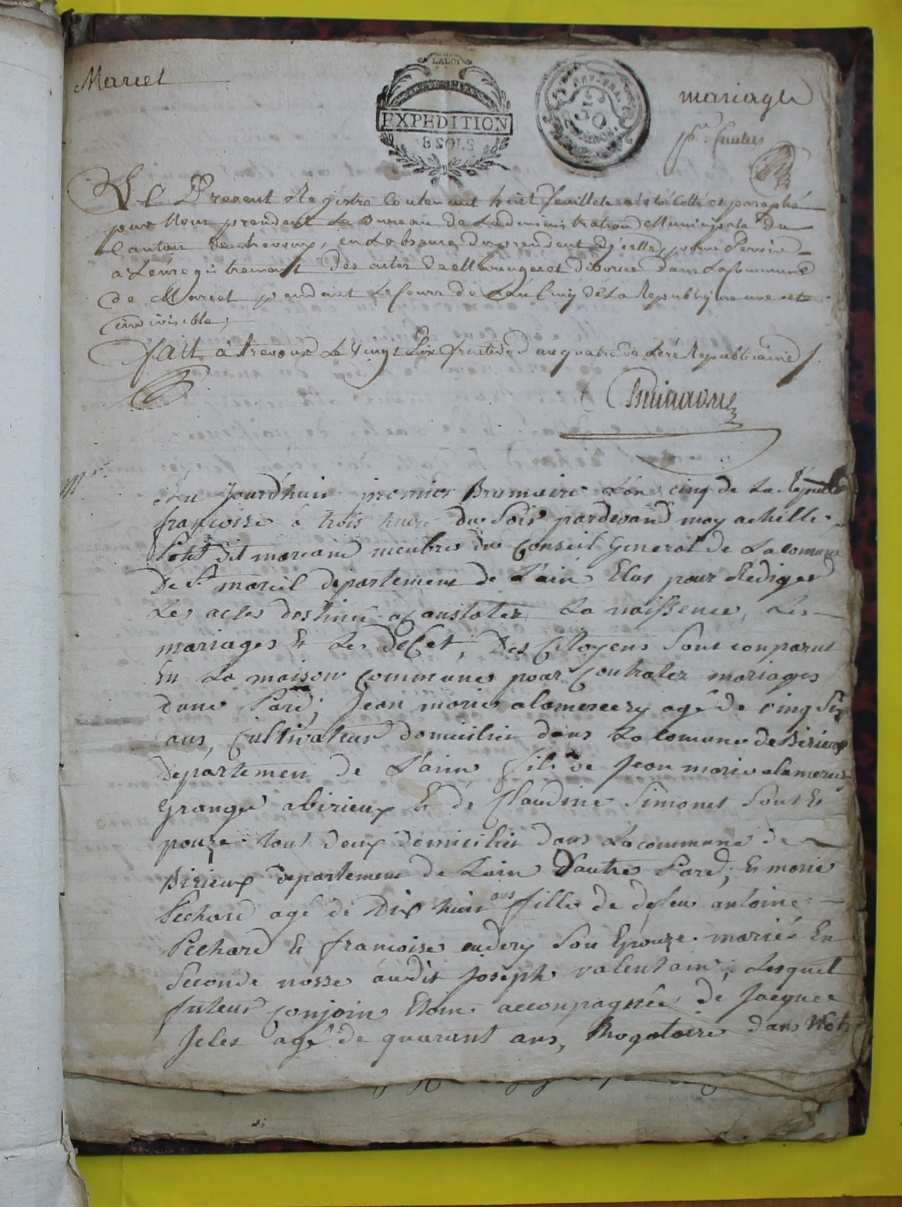 Marcel
mariage
LA LOI
EXPEDITION
8 SOLS
pr. feuillet
Le Present Registre Contenant huit feuillets a été Cotté et paraphé
par Nous president Le Bureau de Ladministration Municipale du
Canton de Trevoux, en Labsence du president dycelle, pour Servir
a Lenregistrement des actes de Mariage et divorce dans La Commune
de Marcel pendant Le Cours de Lan Cinq de La Republique une et
indivisible,
Fait a Trevoux Le Vingt Six fructidor an quatre de Lere Republicaine
Ce Jourdhuis premier Brumaire Lan cinq de La Repub
francoise a trois heure du Soir pardevand moy achille
Petit dit mariand menbre du Conseil General de La comune
De St marcel departement de Lain Elus pour Rediger
Les actes destinée a Constater La naissence, Les
mariages Et Les deCet, Des Citoyens Sont conparut
En La maison Commune pour Contrater mariages
dune Pard; Jean marie alamercery agé de Cinq
ans, Cultivateur domicilier dans La Comune de Birieux
Departemen de Lain fils de Jean marie alamercery
Granger a birieux Et de Claudine Simonet Sont E
pouze tout deux Demicilier dans La commune de
Birieux departement de Lain Dautre Pard; Et marie
Pechard agé de Dix huit ans fille de defeu antoine
Pechard Et francoise Son Epouze mariée En
Seconde nosse audit Joseph valentain; Lesquel
futeur Conjoin Etant accompagnée de Jacque
agé de quarant ans, dans